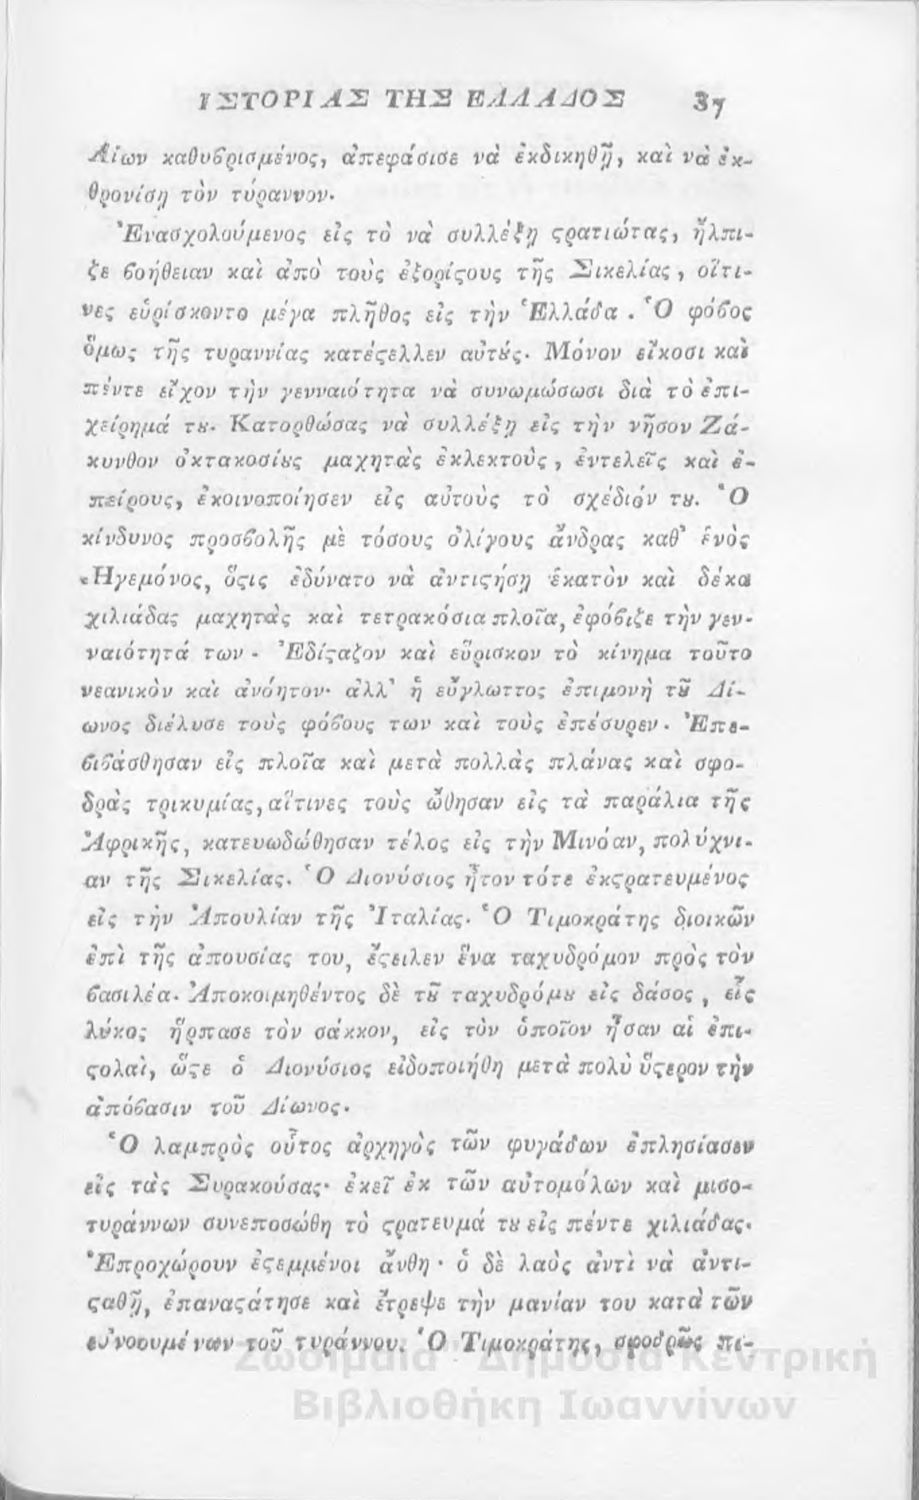 ΙΣΤΟΡΙΑΣ ΤΗΣ ΕΛΛΑΔΟΣ 37
Δίων καθυβρισμένος, ἀπεφάσισε νὰ ἐκδικηθῇ, καὶ νὰ ἐκ-
θρονίσῃ τὸν τύραννον.
Ἐνασχολούμενος εἰς τὸ νὰ συλλέξῃ ϛρατιώτας, ἤλπι-
ζε βοήθειαν καὶ ἀπὸ τοὺς ἐξορίϛους τῆς Σικελίας, οἵτι-
νες εὑρίσκοντο μέγα πλῆθος εἰς τὴν Ἑλλάδα. Ὁ φόβος
ὅμως τῆς τυραννίας κατέϛελλεν αὐτȣ́ς. Μόνον εἴκοσι καὶ
πέντε εἶχον τὴν γενναιότητα νὰ συνωμώσωσι διὰ τὸ ἐπι-
χείρημά τȣ. Κατορθώσας νὰ συλλέξῃ εἰς τὴν νῆσον Ζά-
κυνθον ὀκτακοσίȣς μαχητὰς ἐκλεκτοὺς, ἐντελεῖς καὶ ἐ-
πείρους, ἐκοινοποίησεν εἰς αὐτοὺς τὸ σχέδιόν τȣ. Ὁ
κίνδυνος προσβολῆς μὲ τόσους ὀλίγους ἄνδρας καθ' ἑνὸς
Ἡγεμόνος, ὅϛις ἐδύνατο νὰ ἀντιϛήσῃ ἑκατὸν καὶ δέκα
χιλιάδας μαχητὰς καὶ τετρακόσια πλοῖα, ἐφόβιζε τὴν γεν-
ναιότητά των. Ἐδίϛαζον καὶ εὕρισκον τὸ κίνημα τοῦτο
νεανικὸν καὶ ἀνόητον· ἀλλ' ἡ εὔγλωττος ἐπιμονὴ τȣ͂ Δί-
ωνος διέλυσε τοὺς φόβους των καὶ τοὺς ἐπέσυρεν. Ἐπε-
βιβάσθησαν εἰς πλοῖα καὶ μετὰ πολλὰς πλάνας καὶ σφο-
δρὰς τρικυμίας, αἵτινες τοὺς ὤθησαν εἰς τὰ παράλια τῆς
Ἀφρικῆς, κατευωδώθησαν τέλος εἰς τὴν Μινόαν, πολύχνι-
αν τῆς Σικελίας. Ὁ Διονύσιος ἦτον τότε ἐκϛρατευμένος
εἰς τὴν Ἀπουλίαν τῆς Ἰταλίας. Ὁ Τιμοκράτης διοικῶν
ἐπὶ τῆς ἀπουσίας του, ἔϛειλεν ἕνα ταχυδρόμον πρὸς τὸν
βασιλέα. Ἀποκοιμηθέντος δὲ τȣ͂ ταχυδρόμȣ εἰς δάσος, εἷς
λύκος ἥρπασε τὸν σάκκον, εἰς τὸν ὁποῖον ἦσαν αἱ ἐπι-
ϛολαὶ, ὥϛε ὁ Διονύσιος εἰδοποιήθη μετὰ πολὺ ὕϛερον τὴν
ἀπόβασιν τοῦ Δίωνος.
Ὁ λαμπρὸς οὗτος ἀρχηγὸς τῶν φυγάδων ἐπλησίασεν
εἰς τὰς Συρακούσας· ἐκεῖ ἐκ τῶν αὐτομόλων καὶ μισο-
τυράννων συνεποσώθη τὸ ϛρατευμά τȣ εἰς πέντε χιλιάδας.
Ἐπροχώρουν ἐϛεμμένοι ἄνθη· ὁ δὲ λαὸς ἀντὶ νὰ ἀντι-
ϛαθῇ, ἐπαναϛάτησε καὶ ἔτρεψε τὴν μανίαν του κατὰ τῶν
εὐνοουμένων τοῦ τυράννου. Ὁ Τιμοκράτης, σφοδρῶς πι-
Ζωσιμαία Δημόσια Κεντρική
Βιβλιοθήκη Ιωαννίνων